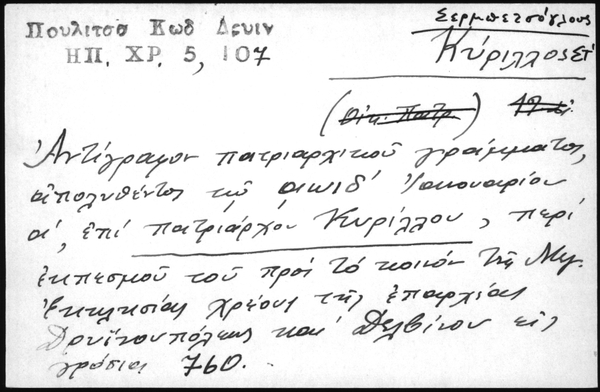 Σερμπετσόγλους
Πουλίτσα Κωδ Δρυιν
ΗΠ. ΧΡ. 5, 107
Κύριλλος ΣΤ'
(Οἰκ. Πατρ.)
Ἀντίγραφον πατριαρχικοῦ γράμματος,
ἀπολυθέντος τῷ αωιδ' Ἰανουαρίου
α', ἐπί πατριάρχου Κυρίλλου, περί
ἐκπεσμοῦ τοῦ πρός τό κοινόν τῆς Μεγ.
Ἐκκλησίας χρέους τῆς ἐπαρχίας
Δρυϊνουπόλεως καί Δελβίνου εἰς
γρόσια 760.